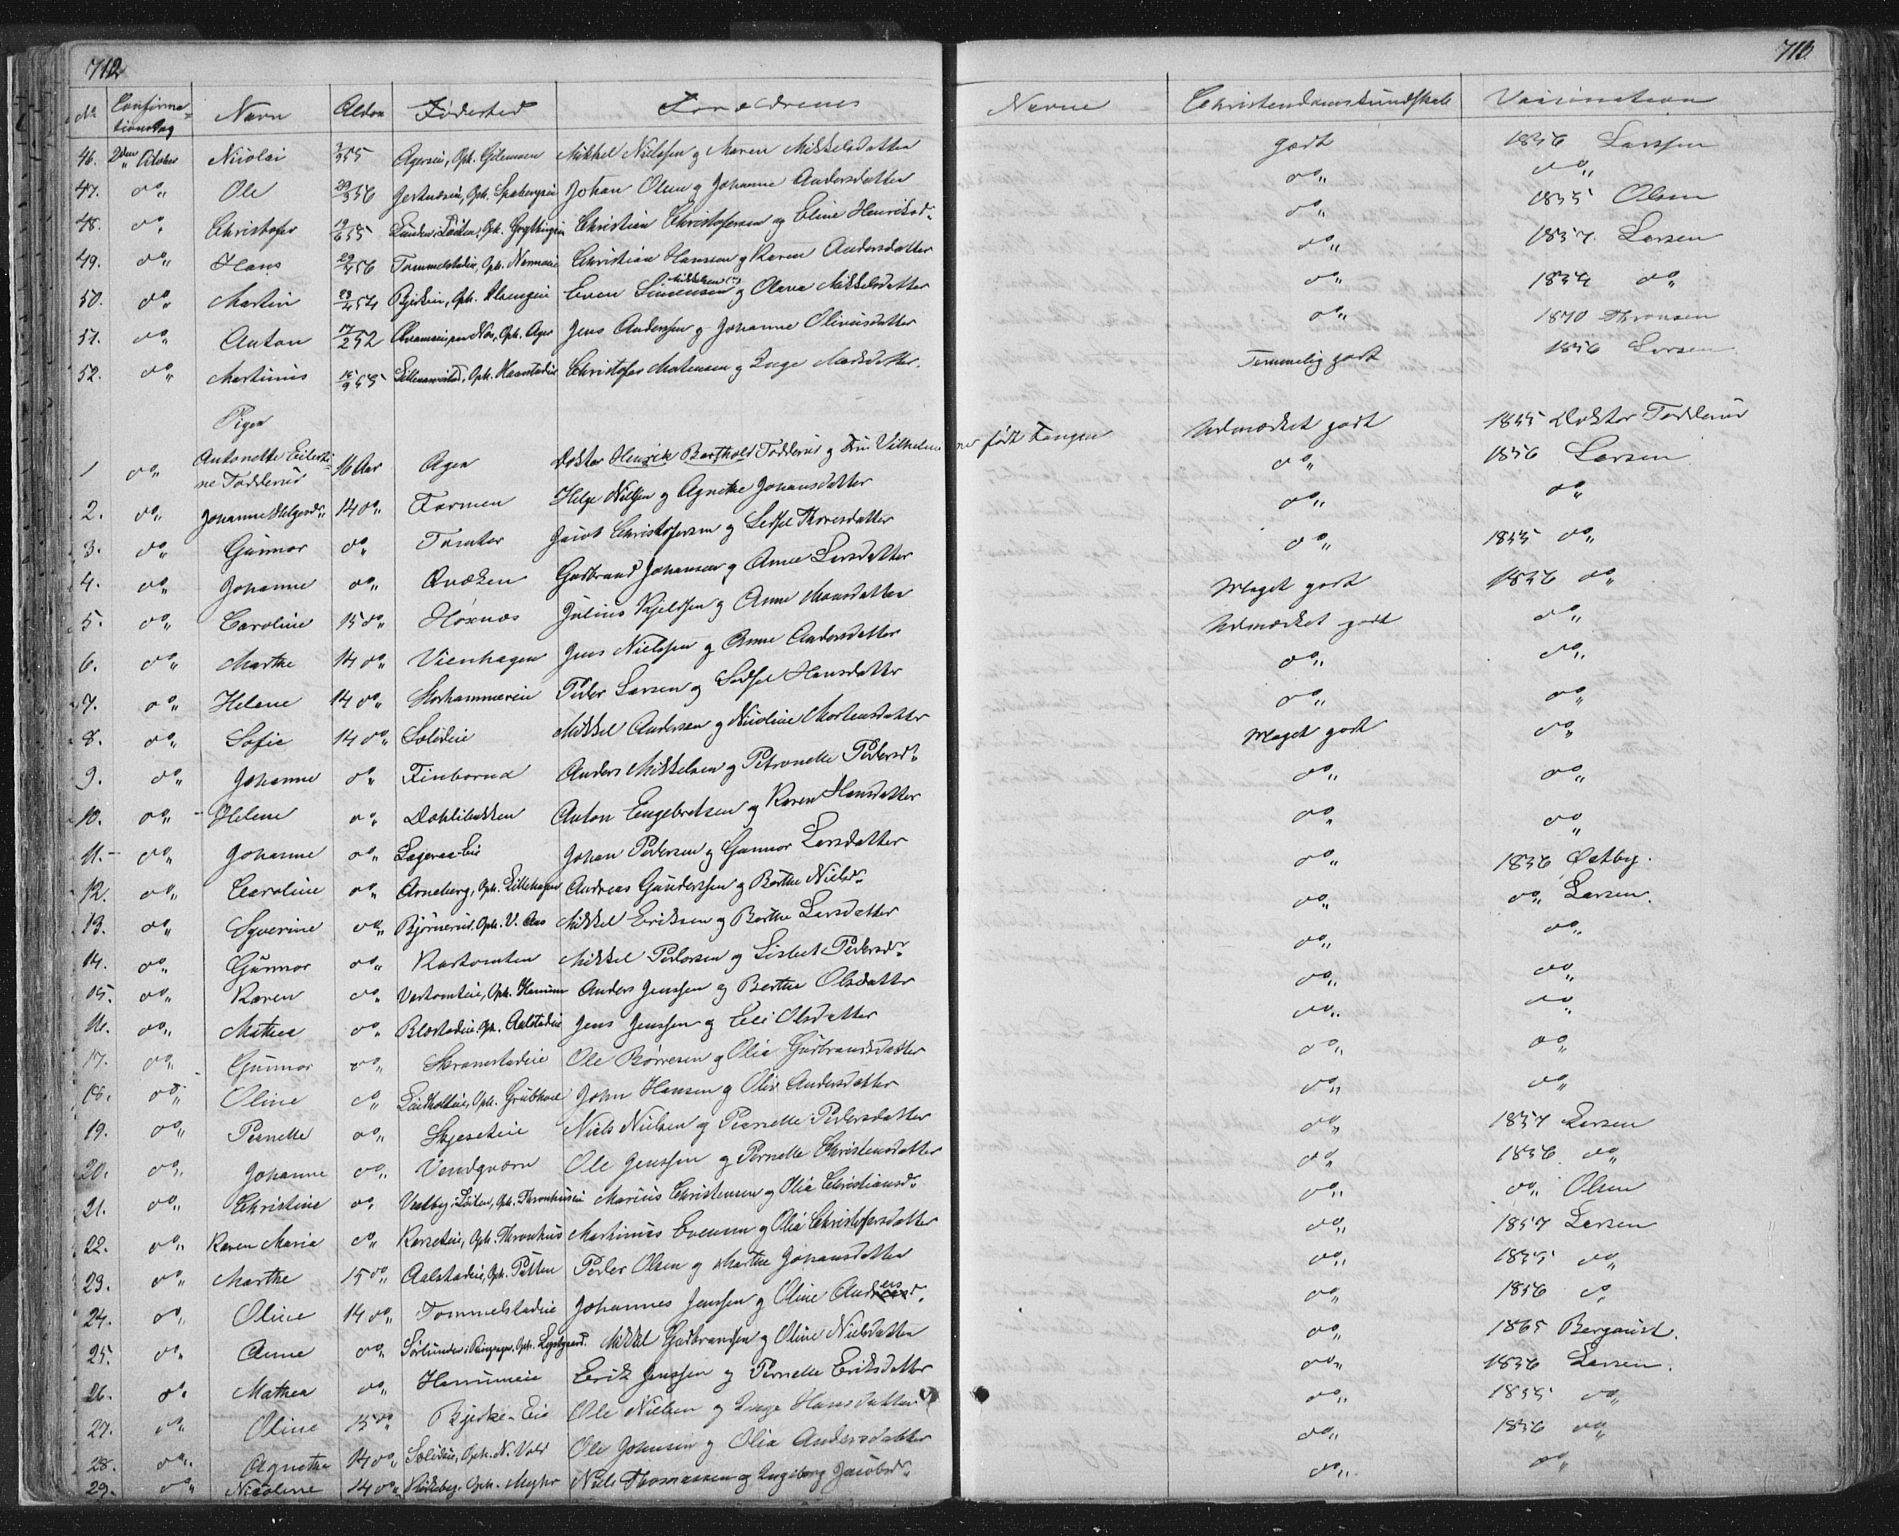 712
713
No Confirmationsdag Navn Alder Fødested Forældrenes Navne Christendomskundskab Vaccination
46. 2den October Nicolai 55 Agerseie, Oph. Mikkel Nielsen og Maren Mikkelsdatter godt 1856 Larsen
47. do Ole 29/3 56 Johan Olsen og Johanne Andersdatter do do
48. do Christofer 19/6 55 Christian Christofersen og Eline Henriksd. do 1855 Olsen
49. do Hans 29/4 56 Tommelstadeie, Oph. Christian Hansen og Karen Andersdatter do 1857. Larsen
50. do Martin 23/4 54 Oph. Even Simensen Mikkelsen (?) og Olava Mikkelsdatter do 1854 do
51. do Anton 17/2 52 Oph. Ager Jens Andersen og Johanne Oliveusdatter do 1870 Thronsen
52. do Martinus 15/9 55 Christofer Mortensen og Inge Madsdatter. Temmelig godt 1856 Larsen
Piger
1 do Antonette Eilertine Todderud 16 Aar Ager Doktor Henrik Barthold Todderud og Fru Vilhelmine født Fangen Udmærket godt 1855 Doktor Todderud
2. do Johanne Helgesd. 14 do Farmen Helge Nielsen og Agnethe Johansdatter do 1856 Larsen
3. do Gunnor do Tomter Jacob Christofersen og Sidsel Thoresdatter do do
4. do Johanne do Qvæken Gudbrand Johansen og Anne Larsdatter do 1855 do
5. do Caroline 15 do Hoxnæs Julius Kjeldsen og Anne Monsdatter Meget godt 1856 do
6. do Marthe 14 do Vienhagen Jens Nielsen og Anne Andersdatter Udmærket godt do
7. do Helene 14 do Storhammereie Peder Larsen og Sidsel Hansdatter do do
8. do Sofie 14 do Solideie Mikkel Andersen og Nicoline Mortensdatter do do
9. do Johanne do Finborud Anders Mikkelsen og Petronelle Pedersd. Meget godt do
10. do Helene do Dahlibakken Anton Engebretsen og Karen Hansdatter do do
11. do Johanne do Johan Pedersen og Gunnor Larsdatter do do
12. do Caroline do Arneberg, Oph. Lillehagen Andreas Gundersen og Berthe Nielsd. do 1856 Østby.
13. do Syverine do Bjørnerud, Oph. V. Aas Mikkel Eriksen og Berthe Larsdatter do do Larsen.
14. do Gunnor do Kartomten Mikkel Pedersen og Lisbet Pedersd. do do
15. do Karen do Oph. Anders Jensen og Berthe Olsdatter do do
16. do Mathea do Blæstadeie, Oph. Aalstadeie Jens Jensen og Eli Olsdatter do do
17. do Gunnor do Skramstadeie Ole Børresen og Olia Gudbrandsdatter do do
18. do Oline do Lindholteie, Oph. Grubhol John Hansen og Olia Andersdatter do do
19. do Pernelle do Skjeseteie Niels Nielsen og Pernelle Pedersdatter do 1857 Larsen
20. do Johanne do Vendqværn Ole Jensen og Pernelle Christensdatter do 1856 do
21. do Christine do Vestby i Løiten, Oph. Thronhuseie Marius Christensen og Olia Christiansd. do do Olsen
22. do Karen Maria do Korseteie, Oph. Thronhus Martinus Evensen og Olia Christofersdatter do 1857 Larsen
23. do Marthe 15 do Aalstadeie, Oph. Putten Peder Olsen og Marthe Johansdatter do 1855 do
24. do Oline 14 do Tommelstadeie Johannes Jensen og Oline Andersd. do 1856 do
25. do Anne do Sørlunden i Ringsager, Oph. Mikkel Gudbrandsen og Oline Nielsdatter do 1865 Bergqvist.
26. do Mathea do Hommeie Erik Jensen og Pernelle Eriksdatter do 1856 Larsen.
27. do Oline 15 do Bjerke-Eie Ole Nielsen og Inge Hansdatter do 1855 do
28. do Agnethe 14 do Solideie, Oph. N. Vold Ole Johnsen og Olia Andersdatter do 1856 do
29. do Nicoline 14 do Oph. Myhr Niels Thomassen og Ingeborg Jacobsd. do do